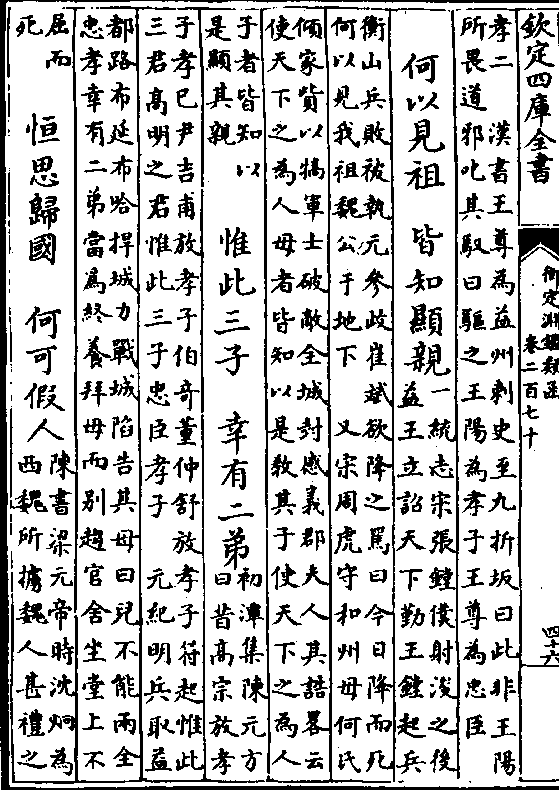 欽定四庫全書
御定淵鑑類函
卷二百七十
四十六
孝二 漢書王尊為益州刺史至九折坂曰此非王陽
所畏道邪叱其馭曰驅之王陽為孝子王尊為忠臣
何以見祖 皆知顯親
一統志宋張鏜僕射浚之後
益王立詔天下勤王鏜起兵
衡山兵敗被執元參政崔斌欲降之罵曰今日降而死
何以見我祖魏公于地下 又宋周虎守和州母何氏
傾家貲以犒軍士破敵全城封感義郡夫人其誥畧云
使天下之為人母者皆知以是教其子使天下之為人
子者皆知以
是顯其親
惟此三子 幸有二弟
初潭集陳元方
曰昔高宗放孝
子孝已尹吉甫放孝子伯奇董仲舒放孝子符起惟此
三君高明之君惟此三子忠臣孝子 元紀明兵取益
都路布延布哈捍城力戰城陷告其母曰兒不能兩全
忠孝幸有二弟當為終養拜母而別趨官舍坐堂上不
屈而
死
恒思歸國 何可假人
陳書梁元帝時沈炯為
西魏所擄魏人甚禮之